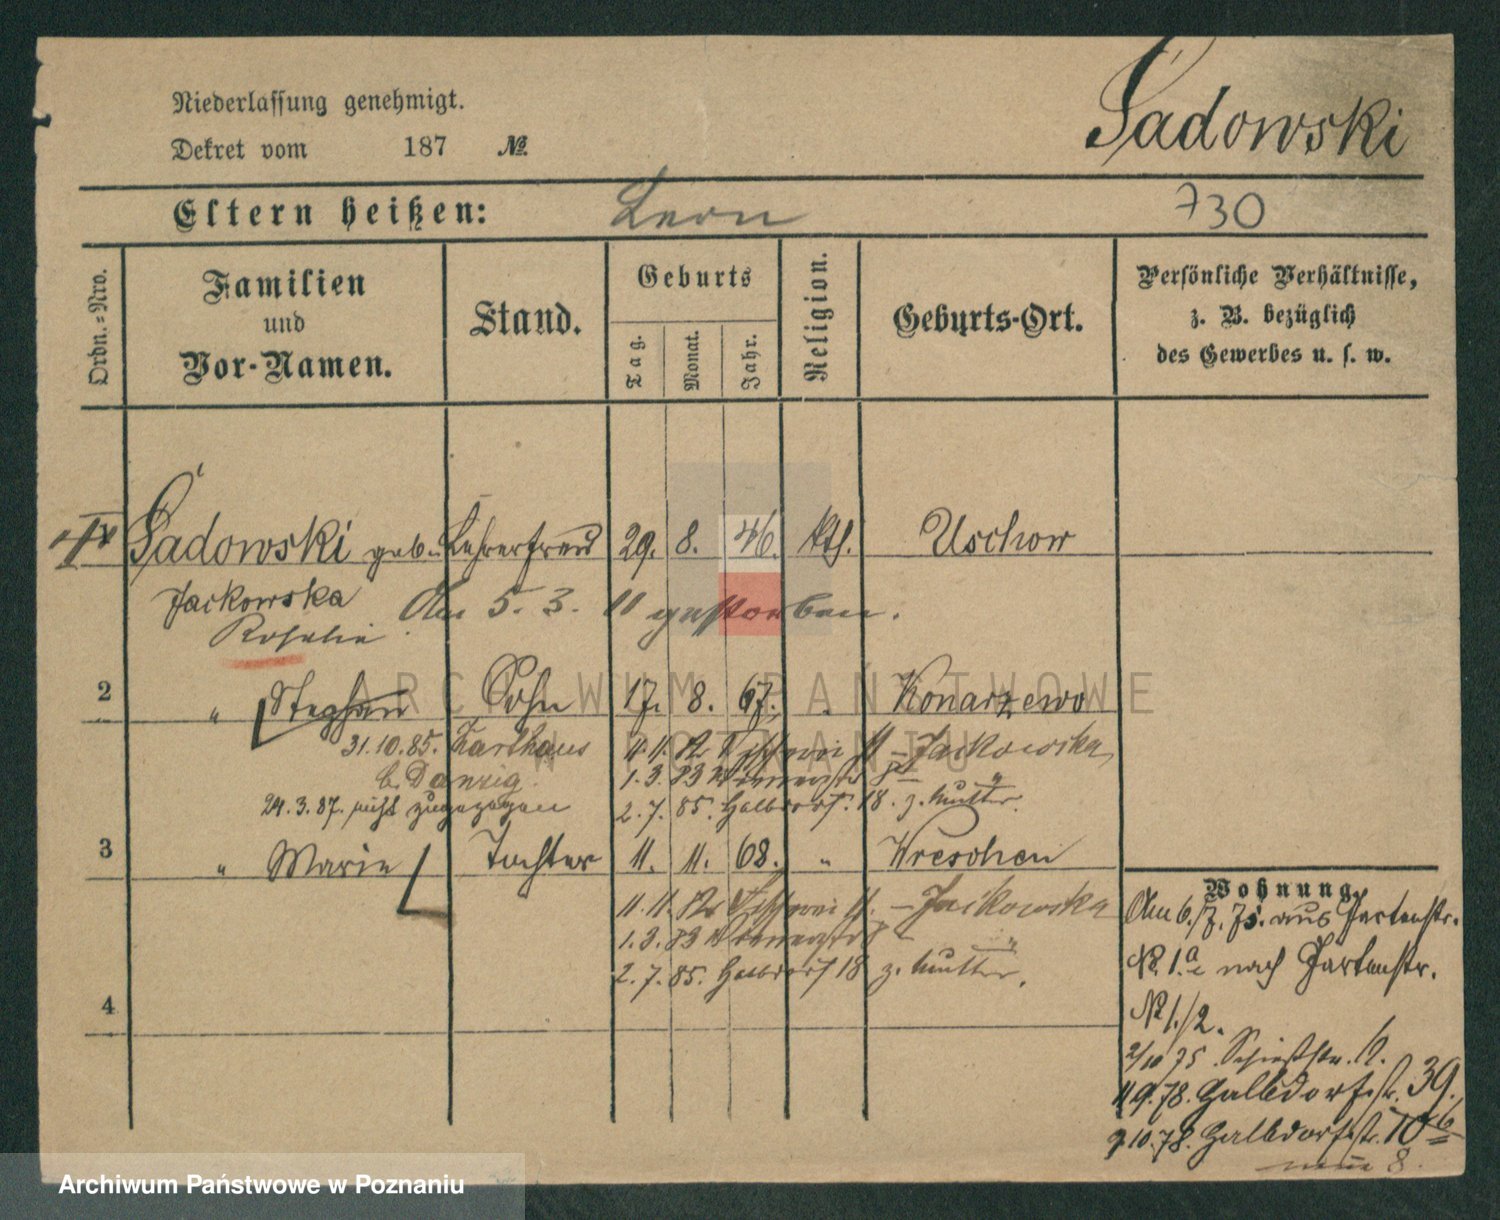 Niederlassung genehmigt.
Dekret vom 187 №.
Sadowski
Eltern heißen: Leon 730
Ordn.-Nro.
Familien und Vor-Namen.
Stand.
Geburts
Tag. Monat. Jahr.
Religion.
Geburts-Ort.
Persönliche Verhältnisse,
z. B. bezüglich
des Gewerbes u. s. w.
Sadowski geb. Lehrerfrau 29. 8. 46. kth. Uschow
Jackowska
Am 5. 3. 11 gestorben.
Rosalie
2 " Stephan Sohn 17. 8. 67. " Konarzewo
31.10.85. Karthaus
b. Danzig.
11.11. 82 11 - Jackowska
1.3.83
24.3.87. nicht zugezogen
2.7.85. Halbdorf. 18. z. Mutter.
3 " Marie Tochter 11. 11. 68. " Wreschen
11.11. 82 11. - Jackowska
1.3.83
2.7.85. Halbdorf 18 z. Mutter.
4
Wohnung.
Am 6./7. 75. aus Gartenstr.
№ 1.a nach Gartenstr.
№ 1./2.
2/10 75. Schießstr. 6.
9.78. Halbdorfstr. 39.
9.10.78. Halbdorfstr. 10b
neue 8.
ARCHIWUM PAŃSTWOWE
W POZNANIU
Archiwum Państwowe w Poznaniu